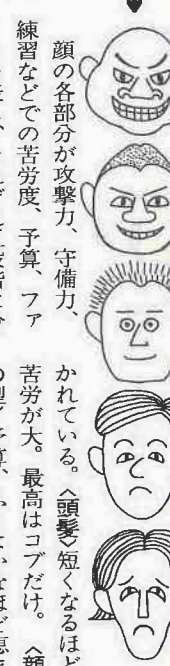 顔の各部分が攻撃力、守備力、
練習などでの苦労度、予算、ファ
かれている。〈頭髪〉短くなるほど
苦労が大。最高はコブだけ。〈顔